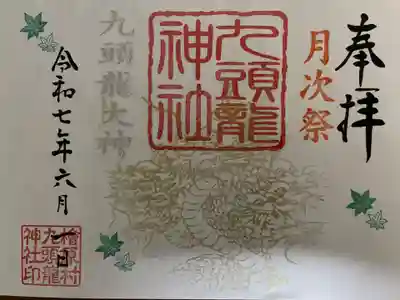 奉拝
月次祭
九頭龍神社
九頭龍大神
令和七年六月一日
檜原村
九頭龍
神社印